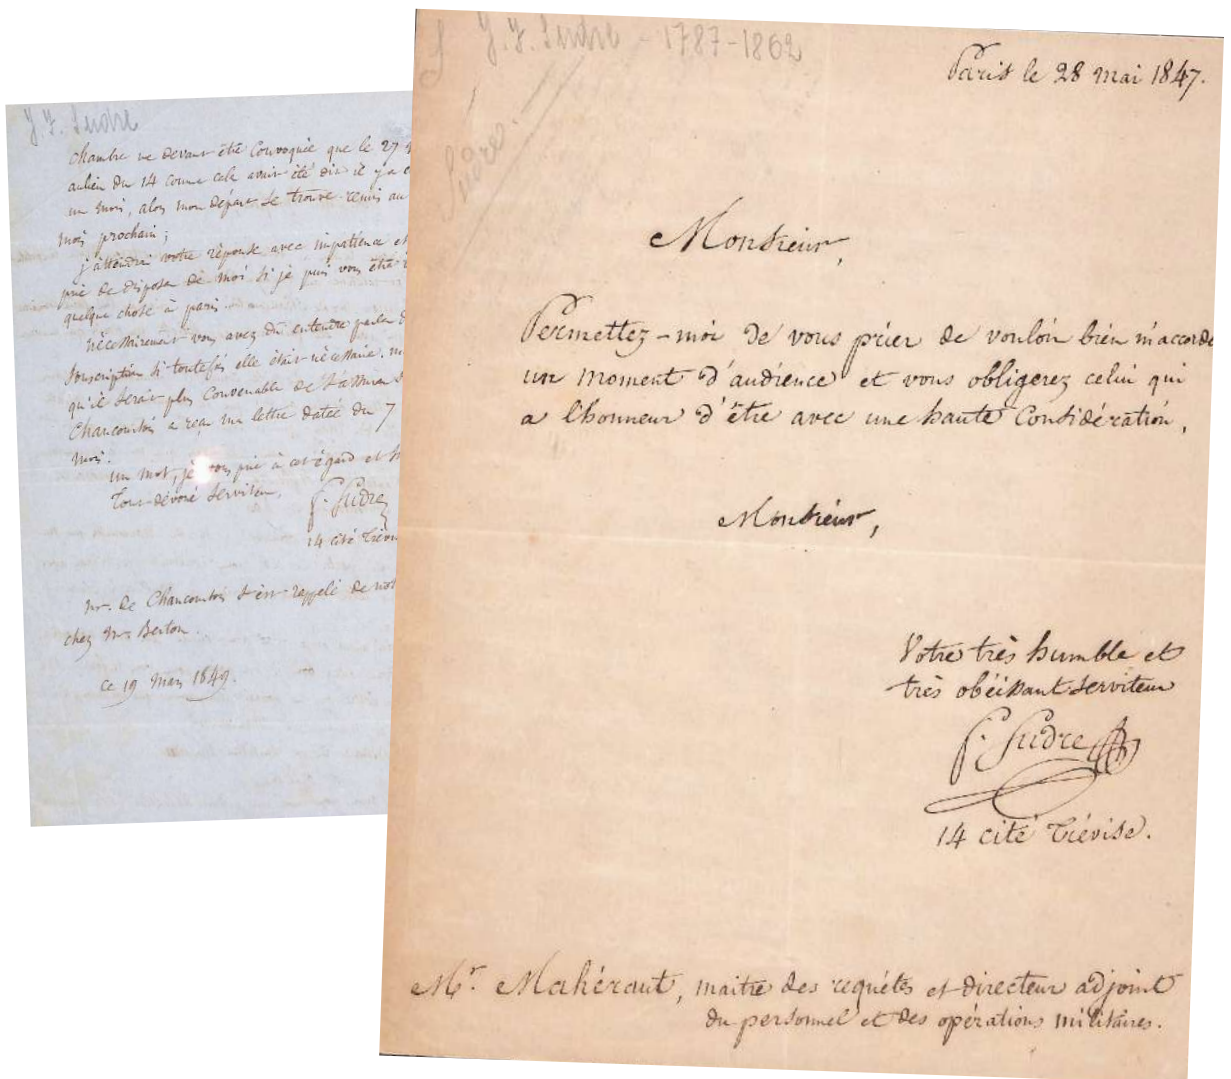 J. F. Sudre
chambre ne devant être convoquée que le 27
aulieu du 14 comme cela avait été dit il y a
un mois, alors mon départ se trouve remis au
mois prochain;
j'attendrai votre réponse avec impatience et
prie de disposer de moi si je puis vous être
quelque chose à paris.
nécessairement vous avez dû entendre parler
souscription si toutefois elle était nécessaire.
qu'il serait plus convenable de s'assurer
Chancourtois a reçu une lettre datée du 7
mois.
un mot, je vous prie à cet égard et
tout dévoué serviteur,
f. Sudre
14 cité Trévise
Mr. de Chancourtois s'est rappelé de
chez Mr Berton.
ce 19 Mars 1849.
S J. F. Sudre - 1787-1862
Sudre.
Paris le 28 mai 1847.
Monsieur,
Permettez-moi de vous prier de vouloir bien m'accorder
un moment d'audience et vous obligerez celui qui
a lhonneur d'être avec une haute considération,
Monsieur,
Votre très humble et
très obéissant serviteur
f. Sudre
14 cité Trévise.
Mr. Mahéraut, maitre des requêtes et directeur adjoint
du personnel et des opérations militaires.